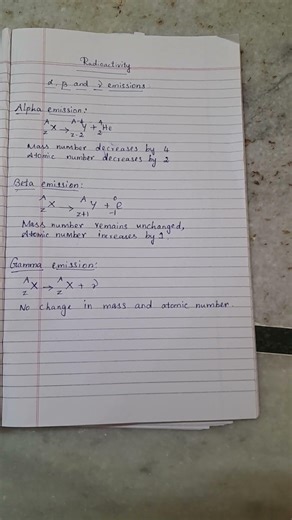 Radioactivity
α, β and γ emissions.
Alpha emission:
ᴬ_Z X → ᴬ⁻⁴_Z-2 Y + ⁴₂He
Mass number decreases by 4
Atomic number decreases by 2
Beta emission:
ᴬ_Z X → ᴬ_Z+1 Y + ⁰₋₁e
Mass number remains unchanged,
Atomic number increases by 1.
Gamma emission:
ᴬ_Z X → ᴬ_Z X + γ
No change in mass and atomic number.